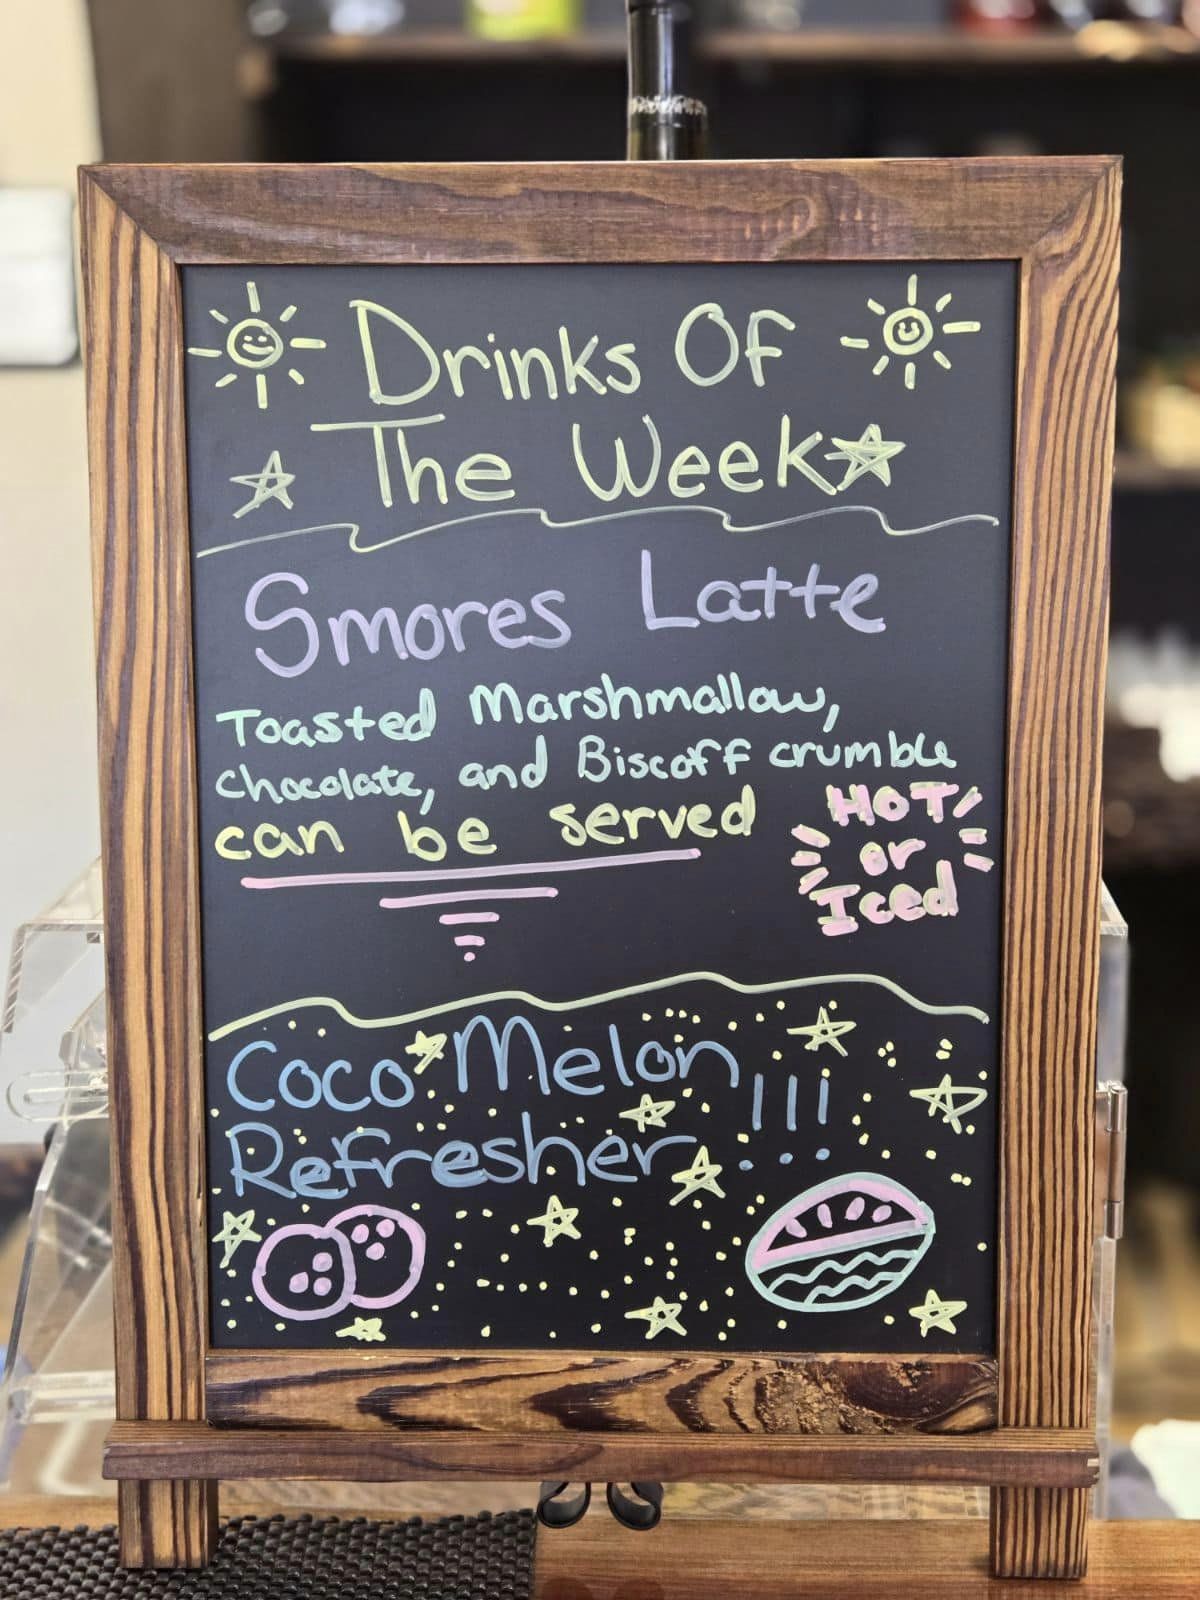 Drinks Of
The Week
Smores Latte
Toasted Marshmallow,
chocolate, and Biscoff crumble
can be served
HOT
or
Iced
Coco Melon
Refresher !!!